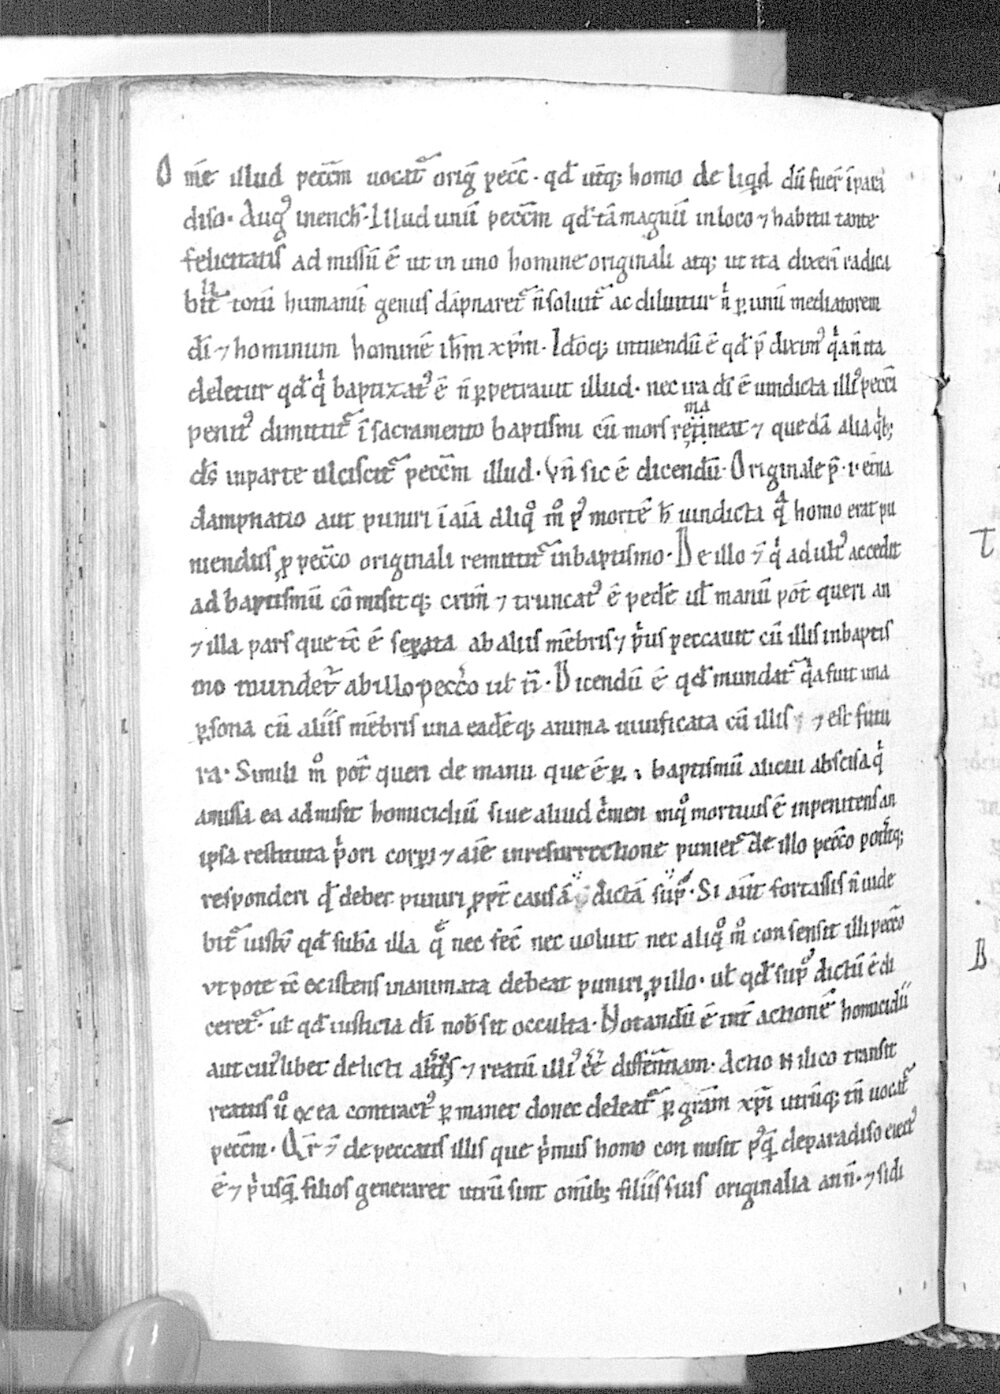 O me illud pecc̄m uocat᷑ oriḡ pecc̄ · qd̄ ut̄q; homo deliq̄d dū fuer̄ ī para
diso · Augꝰ in ench̄ · Illud unū pecc̄m qd̄ tā magnū in loco ⁊ habitu tante
felicitatis admissū ē ut in uno homine originali atq; ut ita dixeri radica
lit̄ totū humanū genus dāpnaret᷑ n̄ soluit᷑ ac diluitur n̄ ꝑ unū mediatorem
dī ⁊ hominum hominē ih̄m xp̄m · Idōq; intuendū ē qd̄ p̄ diximꝰ qͥa n̄ ita
deletur qd̄ qͥ baptizatꝰ ē n̄ ꝑpetrauit illud · nec ira dī ē uindicta illiꝰ pecc̄i
penitꝰ dimittit᷑ ī sacramento baptismi cū mors remaneat ⁊ quedā alia qͥb;
dс̄ in parte ulciscit᷑ pecc̄m illud · Vn̄ sic ē dicendū · Originale p̄ · i · et̄na
dampnatio aut puniri ī aīa aliqͦ mͦ pꝰ mortē h̄ uindicta qͣ homo erat pu
niendus ꝓ pecc̄o originali remittit᷑ in baptismo · De illo ⁊̄ qͥ adultꝰ accedit
ad baptismū cōmisitq; crim̄ ⁊ truncatꝰ ē pedē ul̄ manū pot̄ queri an
⁊ illa pars que tc̄ ē seꝑata ab aliis mēbris ⁊ pͥus peccauit cū illis in baptis
mo mundet᷑ ab illo pecc̄o ul̄ n̄ · Dicendū ē qd̄ mundat᷑ qͥa fuit una
ꝑsona cū aliis mēbris una eadēq; anima uiuificata cū illis ⁊ est futu
ra · Simili mͦ pot̄ queri de manu que ē ꝑ · baptismū alicui abscisa qͥ
amissa ea admisit homicidiū siue aliud cͥmen inqͦ mortuus ē inpenitens an
ipsa restituta pͥori corpͥ ⁊ aīe in resurrectione puniet᷑ de illo pecc̄o potēq;
responderi qd̄ debet puniri ꝓpt̄ causā dictā sup̄ · Si aut̄ fortassis n̄ uide
bit᷑ iustū qd̄ sub̄a illa qͤ nec fec̄ nec uoluit nec aliqͦ mͦ consensit illi pecc̄o
vt pote tc̄ existens inanimata debeat puniri ꝓ illo · ul̄ qd̄ supͣ dictū ē di
ceret᷑ · ul̄ qd̄ iusticia dī nob̄ sit occulta · Notandū ē int̄ actionē homicidii
aut cuiꝰlibet delicti aliis ⁊ reatū illiꝰ eē̄ differentiam · Actio ilico transit
reatus uͦ ex ea contractꝰ ꝑmanet donec deleat᷑ ꝑ gr̄am xp̄i utrūq; tn̄ uocat᷑
pecc̄m · Qr̄ ⁊̄ de peccatis illis que pͥmus homo conmisit pꝰq̄ de paradiso eiectꝰ
ē ⁊ pͥusq̄ filios generaret utrū sint om̄ib; filiis suis originalia an n̄ · ⁊ si di